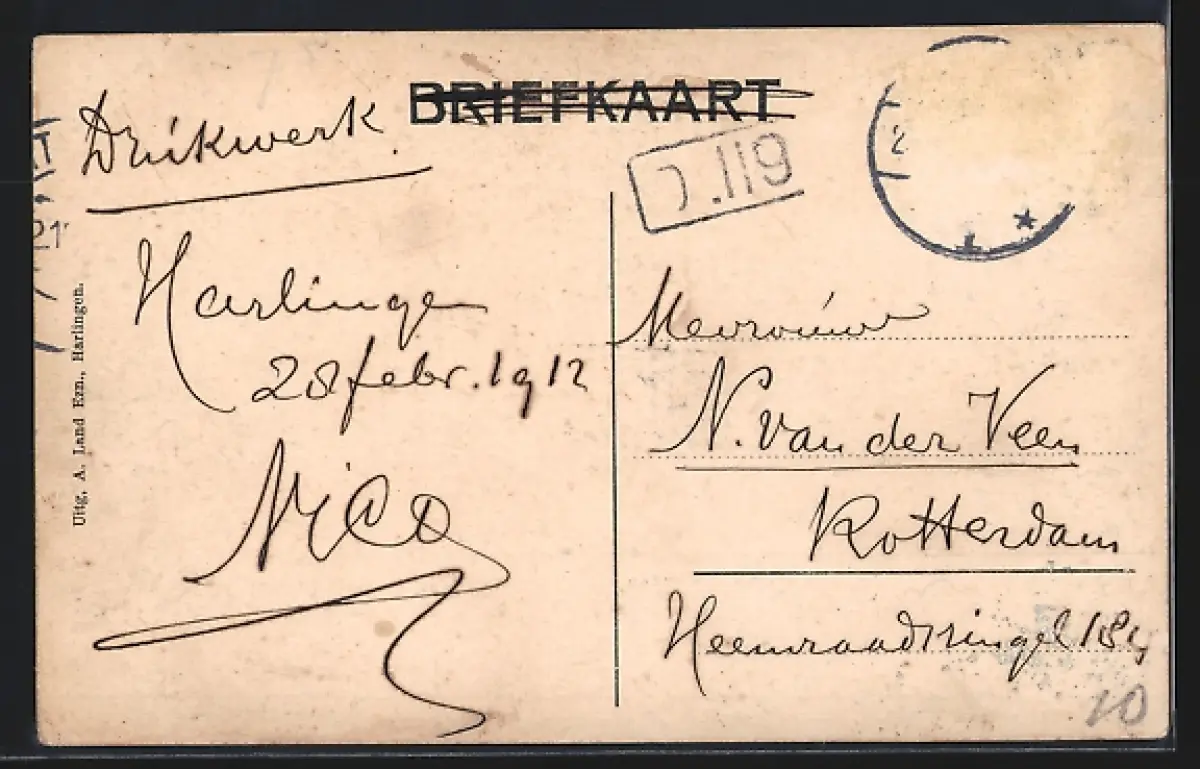 BRIEFKAART
Drukwerk.
Harlingen
28 febr. 1912
Nico
Uitg. A. Land Ezn., Harlingen.
Mevrouw
N. van der Veen
Rotterdam
Heemraadsingel
10
21
2